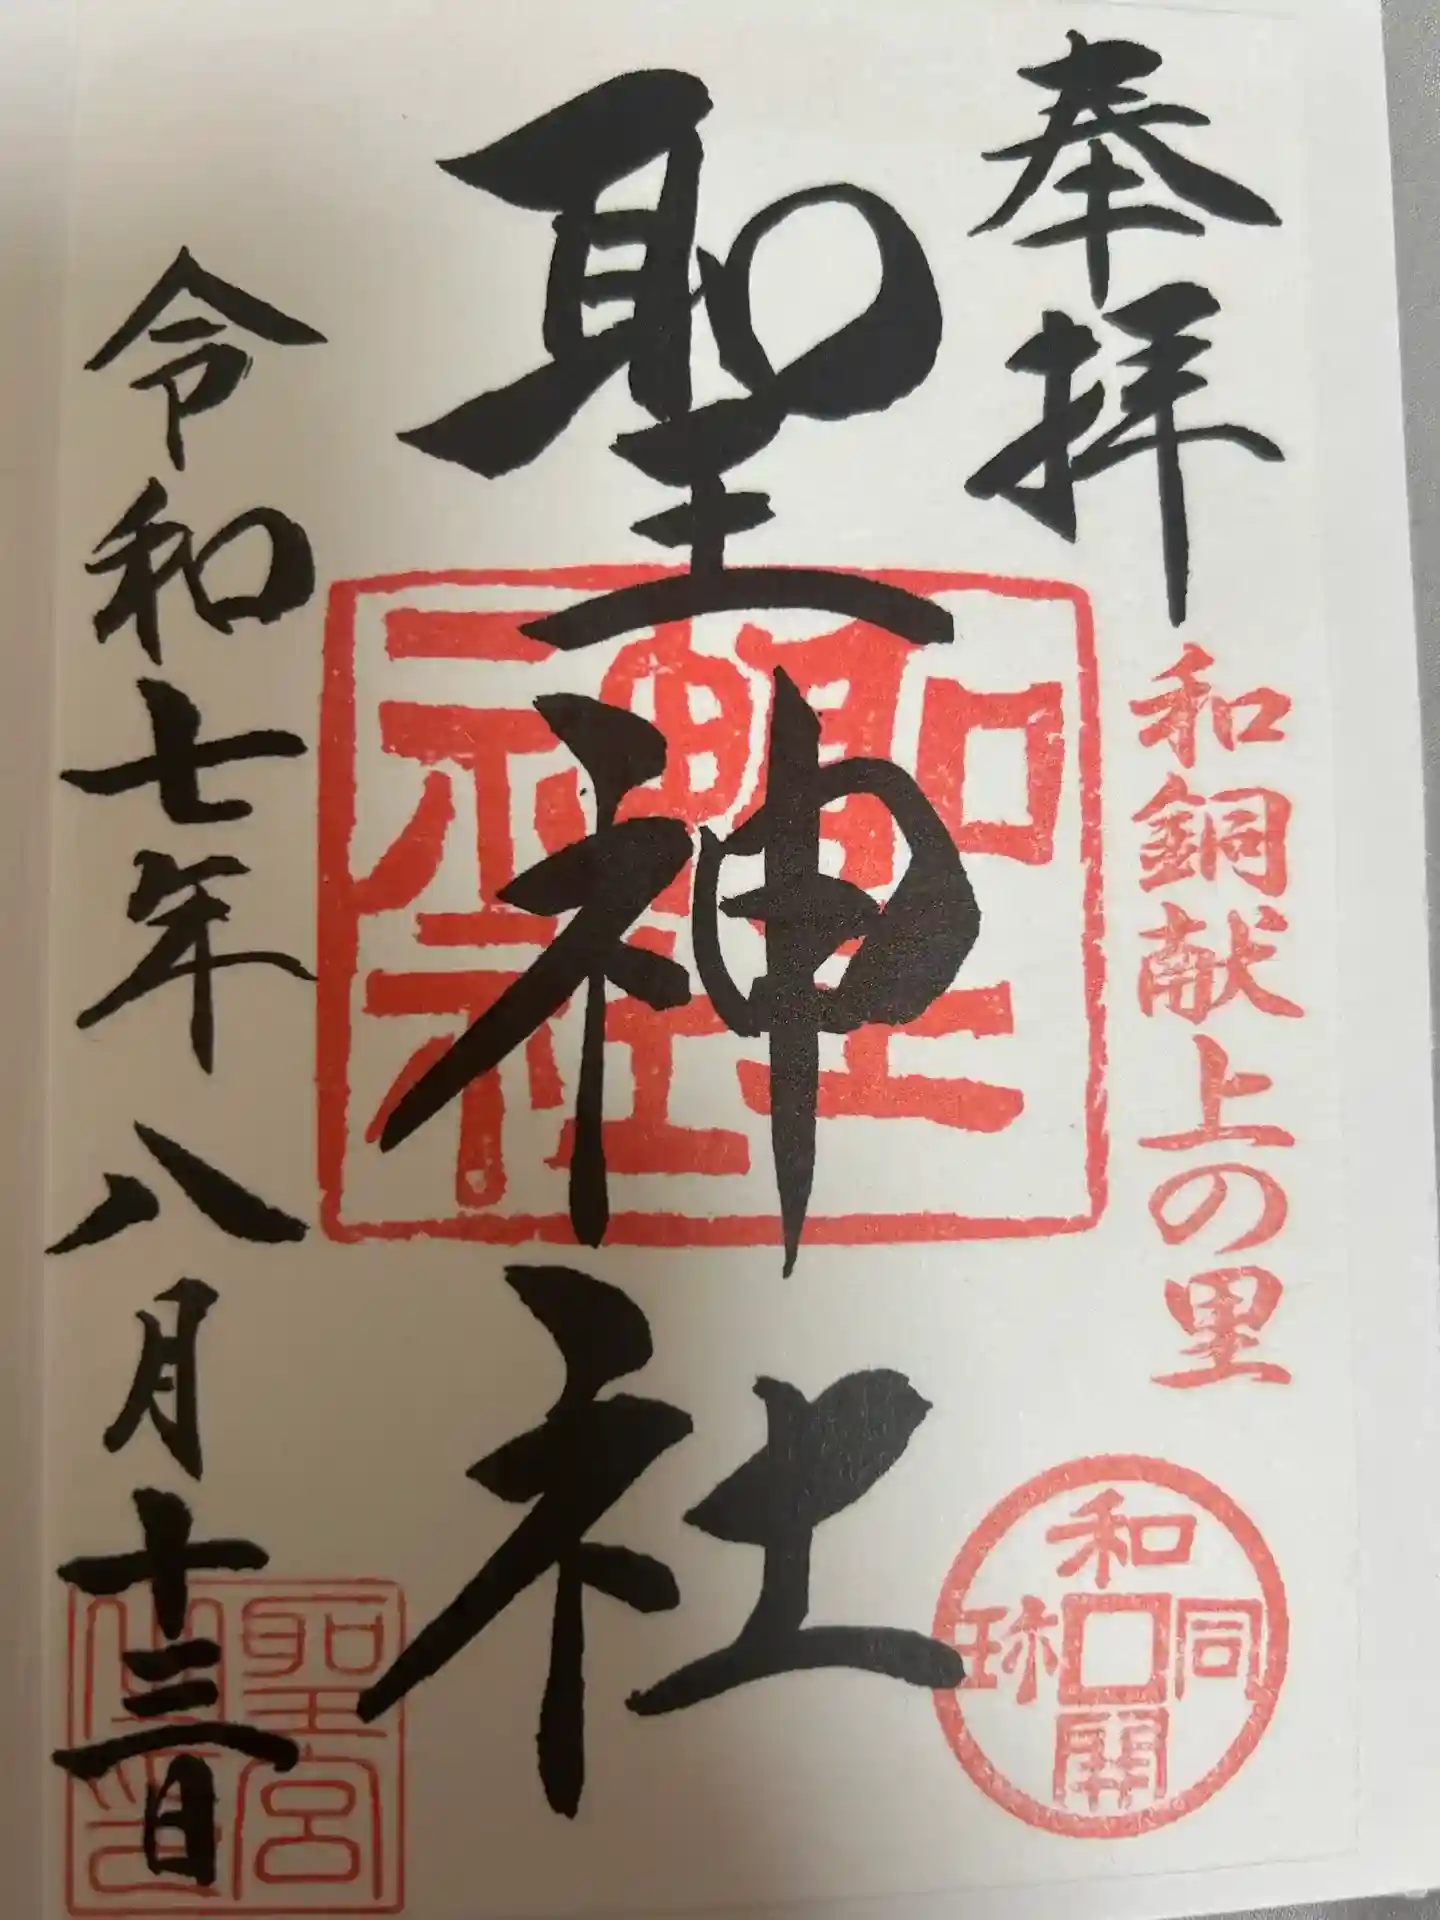 奉拝
和銅献上の里
和同開珎
聖神社
聖神社
令和七年八月十三日
聖宮